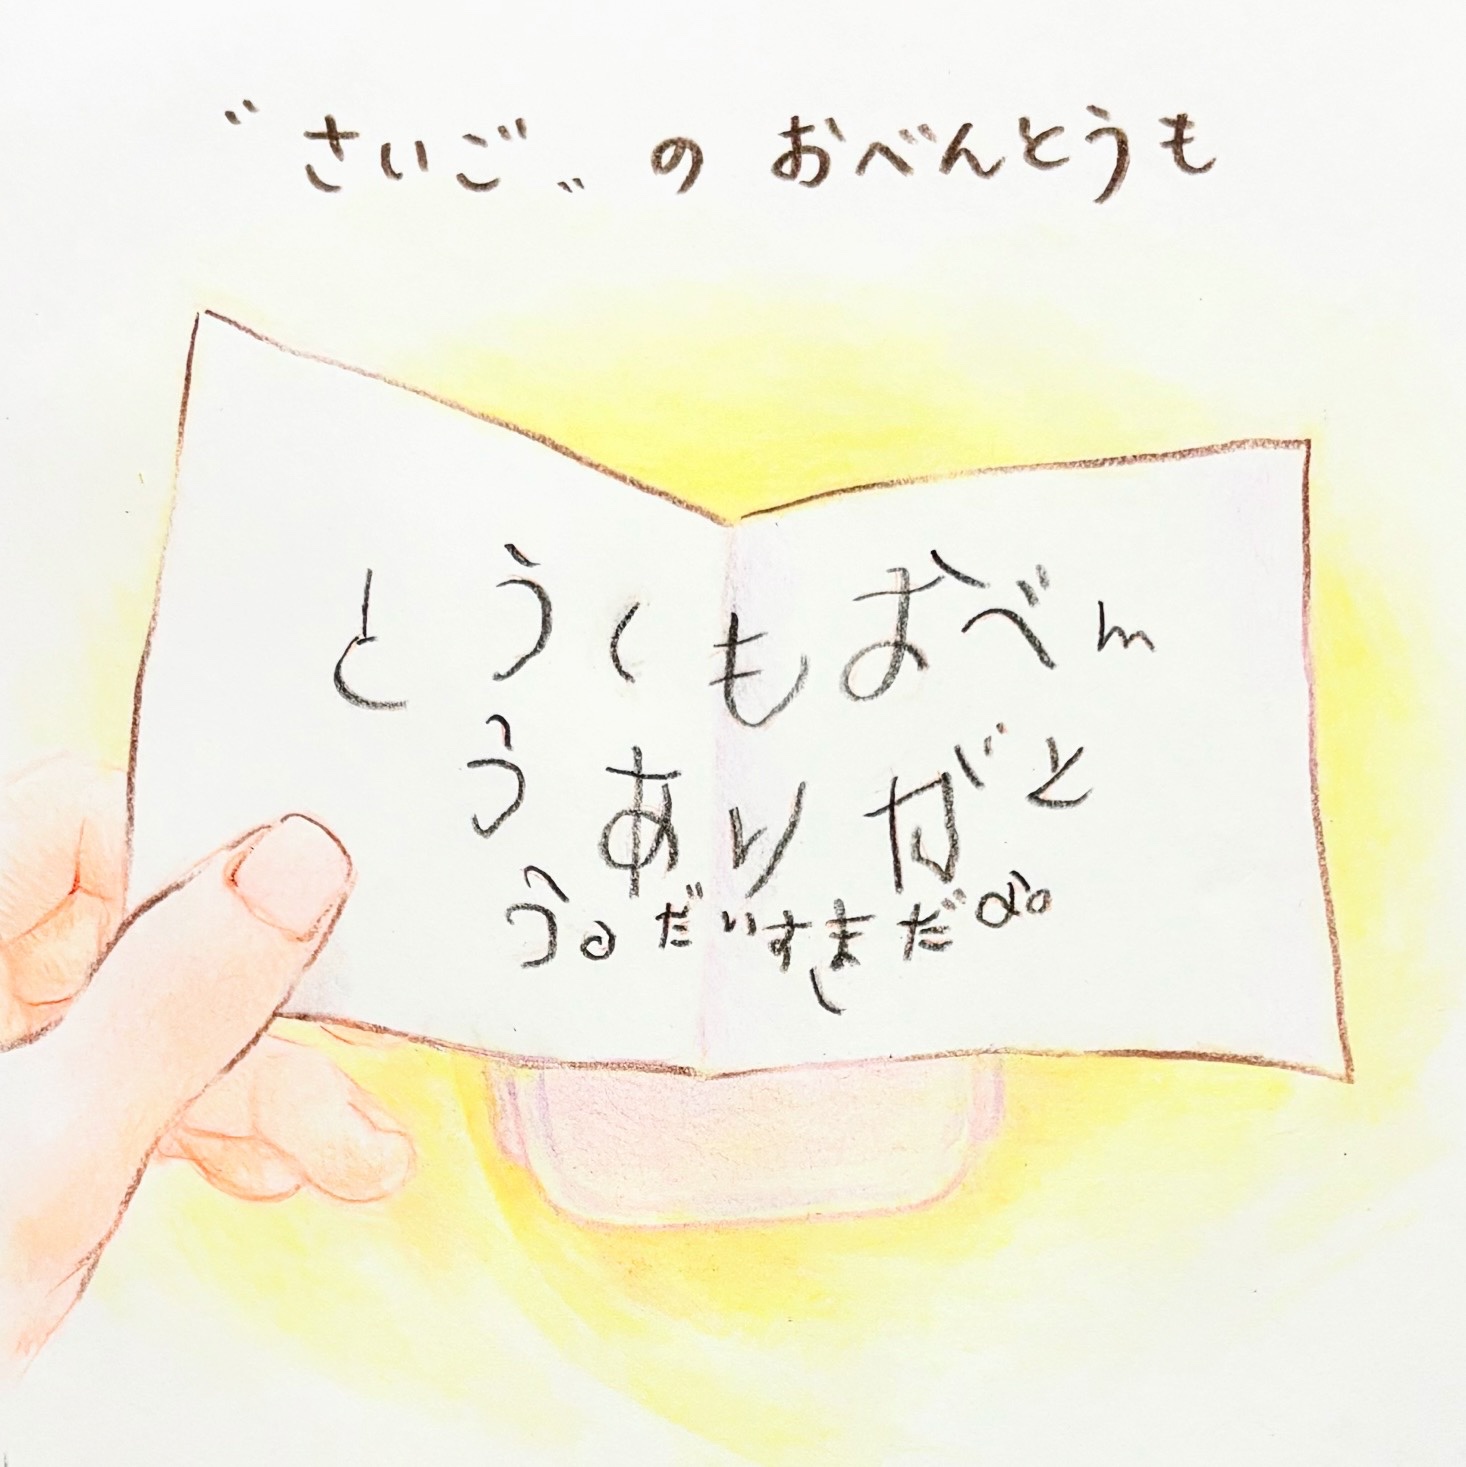 〝さいご〟のおべんとうも
とうくもおべん
うありがと
う。だいすきだよ。